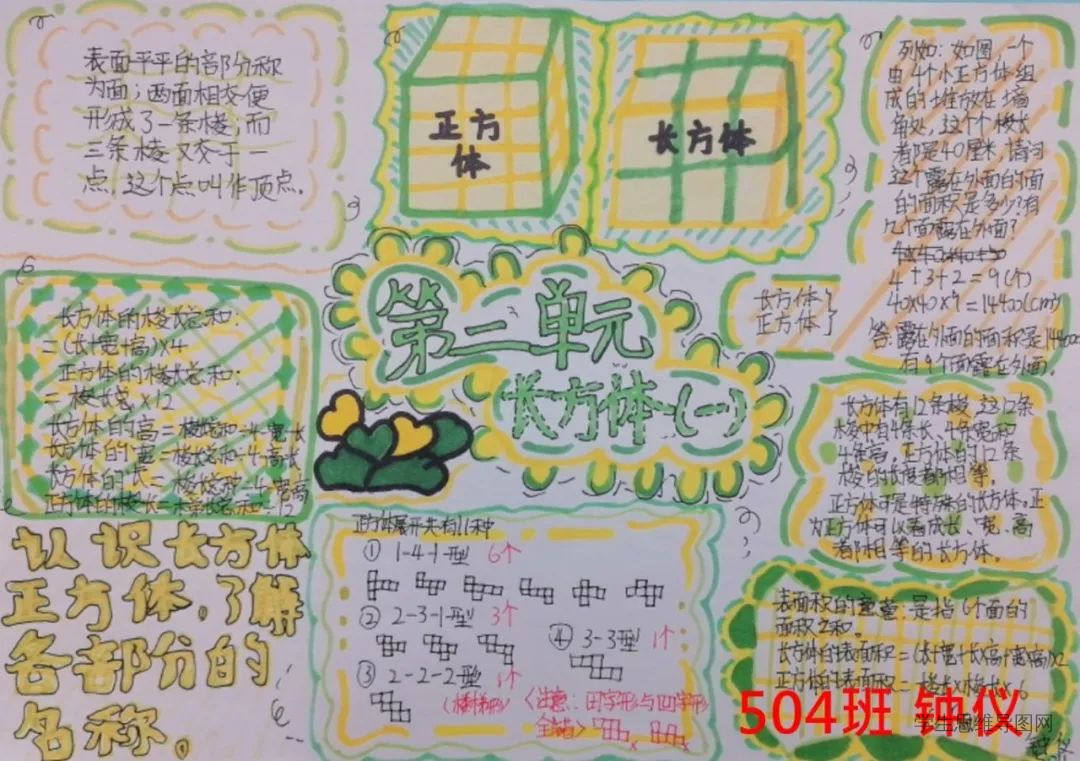 表面平平的部分称
为面；两面相交便
形成了一条棱，而
三条棱又交于一
点，这个点叫作顶点。
正方
体
长方体
列如：如图，一个
由4个小正方体组
成的堆放在墙
角处，这个个棱长
都是40厘米，请问
这个露在外面的面
的面积是多少？有
几个面露在外面？
4+3+2=9(个)
40×40×9=14400(cm)
答：露在外面的面积是14400
有9个面露在外面。
第二单元
长方体(一)
长方体
正方体
长方体的棱长总和：
=(长+宽+高)×4
正方体的棱长总和：
=棱长总×12
长方体的高=棱长总和÷4-宽-长
长方体的宽=棱长总和÷4-高-长
长方体的长=棱长总和÷4-宽-高
正方体的棱长=棱长总和÷12
长方体有12条棱，这12条
棱中有4条长、4条宽和
4条高，正方体的12条
棱的长度都相等。
正方体可是特殊的长方体，正
为正方体可以看成长、宽、高
都相等的长方体。
认识长方体
正方体，了解
各部分的
名称。
正方体展开共有11种
① 1-4-1型 6个
② 2-3-1型 3个
④ 3-3型 1个
③ 2-2-2型 1个
(楼梯形)
<注意：田字形与凹字形
全错>
表面积的重要：是指6个面的
面积之和。
长方体的表面积=(长×宽+长×高+宽×高)×2
正方体的表面积=棱长×棱长×6
504班 钟仪
学生思维导图网